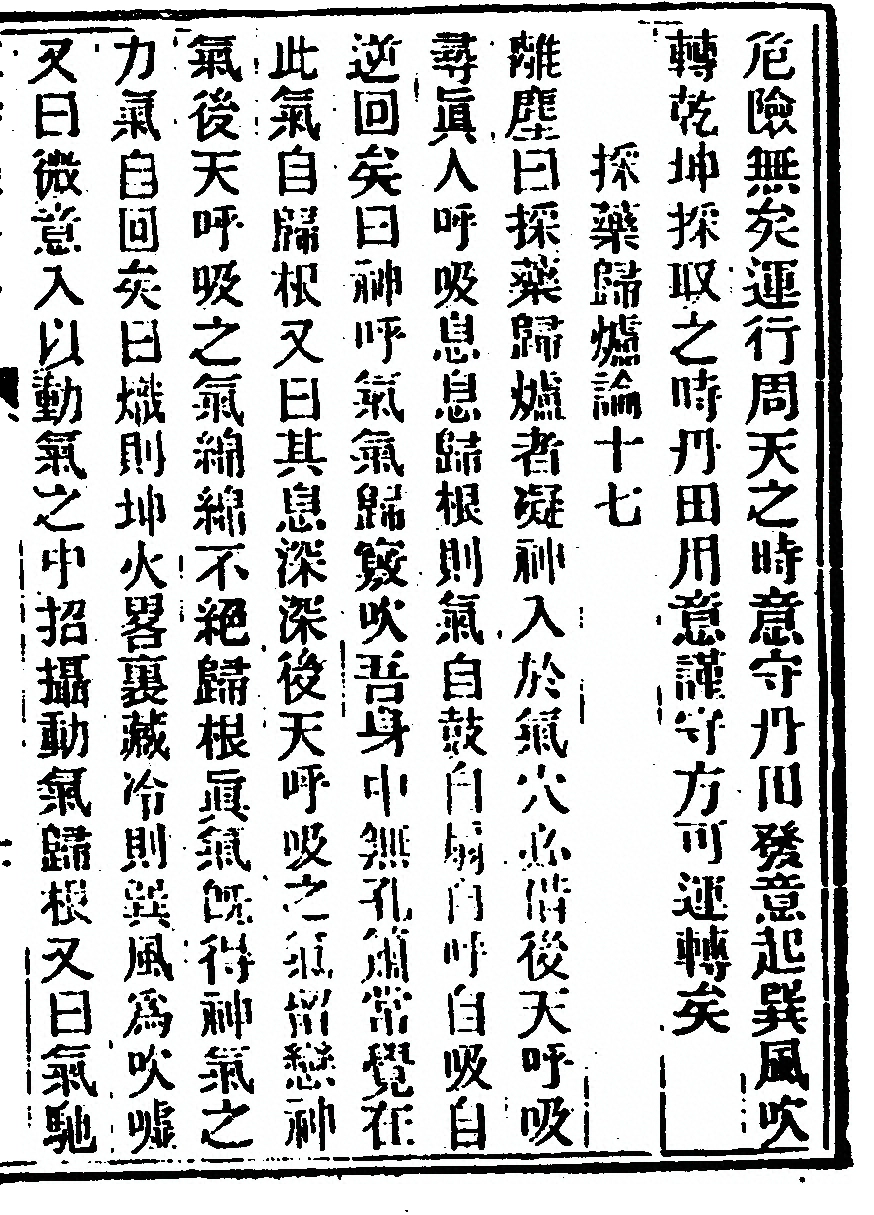 危險無矣運行周天之時意守丹田發意起巽風吹
轉乾坤採取之時丹田用意謹守方可運轉矣
採藥歸爐論十七
離塵曰採藥歸爐者凝神入於氣穴必借後天呼吸
尋眞人呼吸息息歸根則氣自鼓自扇自呼自吸自
逆回矣曰神呼氣氣歸竅吹吾身中無孔笛常覺在
此氣自歸根又曰其息深深後天呼吸之氣留戀神
氣後天呼吸之氣綿綿不絕歸根眞氣旣得神氣之
力氣自回矣曰熾則坤火畧裏藏冷則巽風為吹噓
又曰微意入以動氣之中招攝動氣歸根又曰氣馳